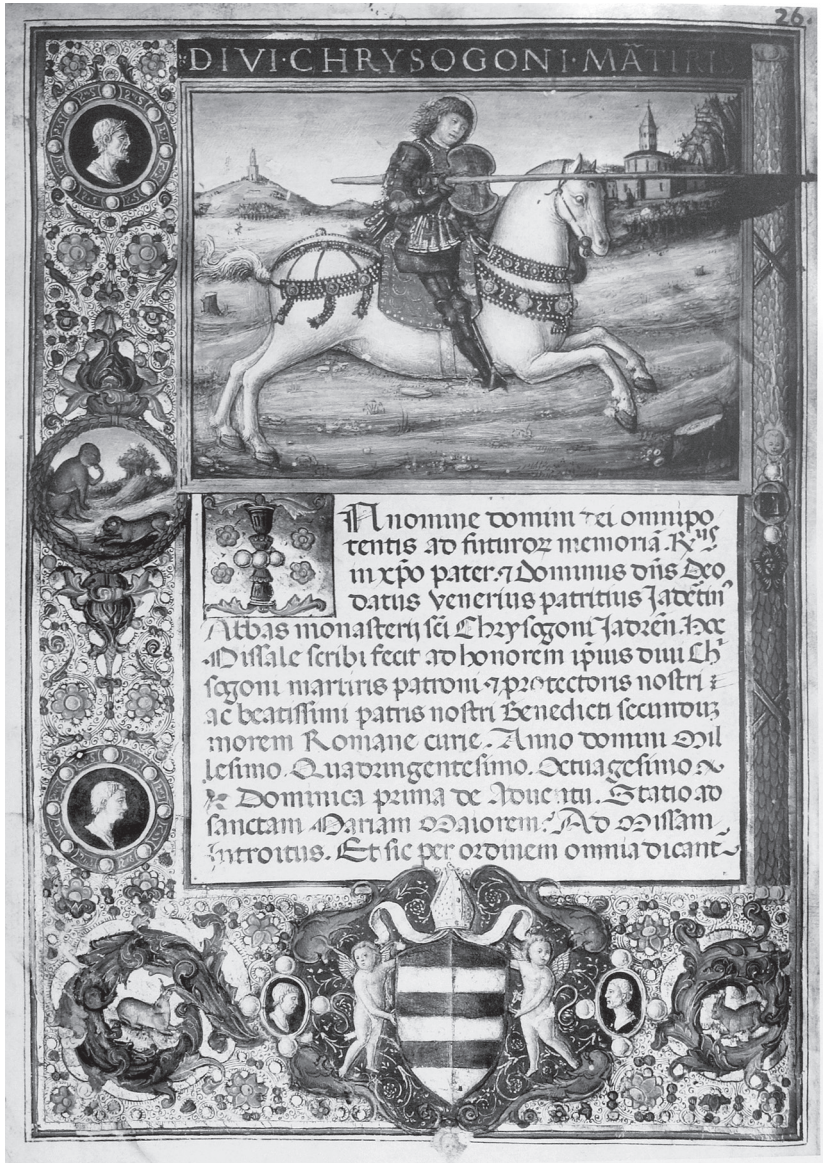 26.
DIVI·CHRYSOGONI·MÃTIRI
N nomine domini dei omnipo
tentis ad futuroꝝ memoriã. R.ᵘˢ
in xp̃o pater ⁊ Dominus dñs Deo
datus Venerius patritius Jadẽtin
Abbas monasterij sc̃i Chrysogoni Jadreñ. Hoc
Missale scribi fecit ad honorem ip̃ius diui Ch
sogoni martiris patroni ⁊ protectoris nostri
ac beatissimi patris nostri Benedicti secunduꝫ
morem Romane curie. Anno domini Mil
lesimo. Quadringentesimo. Octuagesimo
Dominica prima de Aduentu. Statio ad
sanctam Mariam Maiorem. Ad Missam
Introitus. Et sic per ordinem omnia dicant